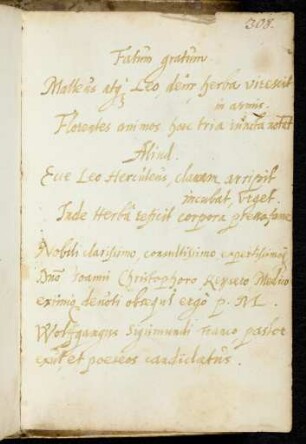 308.
Fatum gratum.
Malleus atq; Leo, dein herba virescit
in armis.
Florentes animos haec tria iuncta notat
Aliud.
Ecce Leo Herculeus, clavam arripit
incubat, viget.
Inde Herba reficit corpora
Nobili clarissimo, consultissimo expertissimoq
Dno Joanni Christophoro Medico
eximio, devoti obsequii ergo p. M.
Wolffgangus Sigismundi Franco pastor
exul et poeseos candidatus.